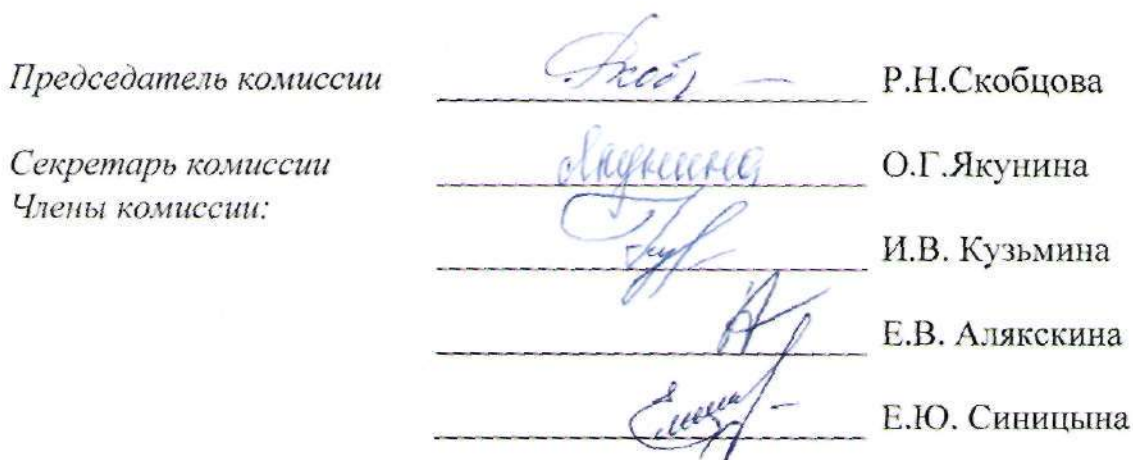 Председатель комиссии Р.Н.Скобцова
Секретарь комиссии Якунина О.Г.Якунина
Члены комиссии:
И.В. Кузьмина
Е.В. Алякскина
Е.Ю. Синицына